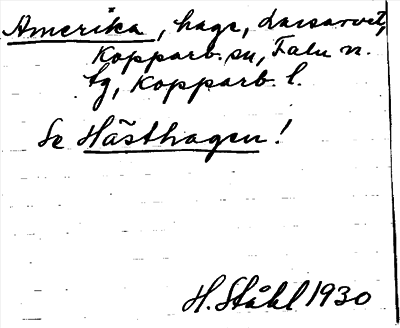 Amerika, hage, Larsarvet,
Kopparb. sn, Falu n.
tg, Kopparb. l.
Se Hästhagen!
H. Ståhl 1930